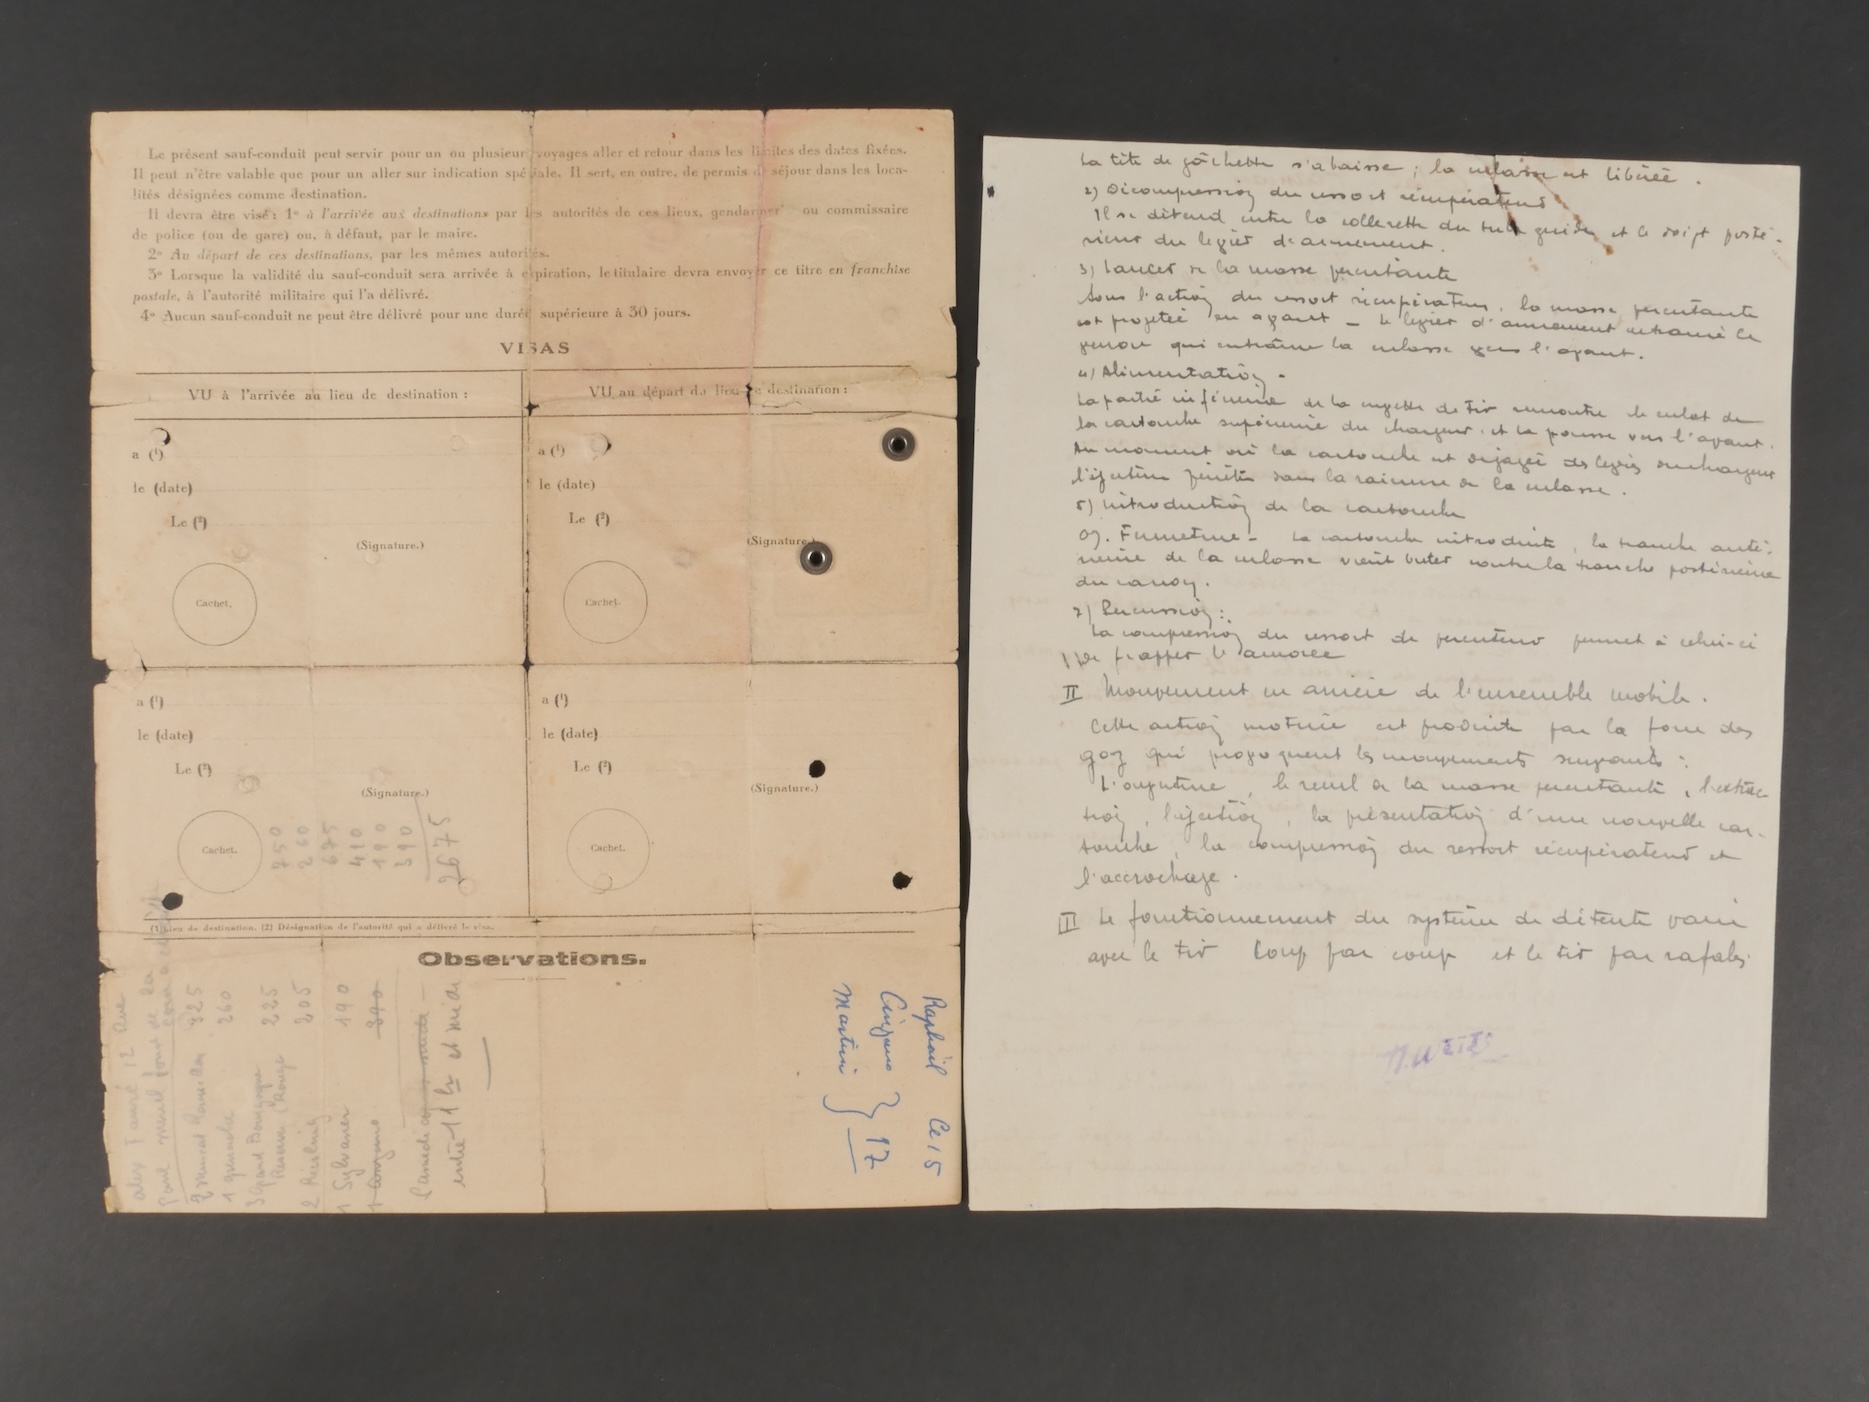 Le présent sauf-conduit peut servir pour un ou plusieurs voyages aller et retour dans les limites des dates fixées.
Il peut n'être valable que pour un aller sur indication spéciale. Il sert, en outre, de permis de séjour dans les loca-
lités désignées comme destination.
Il devra être visé : 1º à l'arrivée aux destinations par les autorités de ces lieux, gendarmerie ou commissaire
de police (ou de gare) ou, à défaut, par le maire.
2º Au départ de ces destinations, par les mêmes autorités.
3º Lorsque la validité du sauf-conduit sera arrivée à expiration, le titulaire devra envoyer ce titre en franchise
postale, à l'autorité militaire qui l'a délivré.
4º Aucun sauf-conduit ne peut être délivré pour une durée supérieure à 30 jours.
VISAS
VU à l'arrivée au lieu de destination :
VU au départ du lieu de destination :
a (1)
le (date)
Le (2)
(Signature.)
Cachet.
a (1)
le (date)
Le (2)
(Signature.)
Cachet.
a (1)
le (date)
Le (2)
(Signature.)
Cachet.
a (1)
le (date)
Le (2)
(Signature.)
Cachet.
750
260
675
410
190
390
2675
(1) Lieu de destination. (2) Désignation de l'autorité qui a délivré le visa.
Observations.
12 Rue
325
1 260
3 Bourgogne 225
2 Riesling 205
1 Sylvaner 190
1 390
entre 11 h et midi
Raphaël Ce 15
Cinzano } 17
Martini
La tête de gâchette s'abaisse ; la culasse est libérée.
2) Décompression du ressort récupérateur
Il se détend entre la collerette du tube guide et le doigt posté-
rieur du levier d'armement.
3) Lancer de la masse percutante
Sous l'action du ressort récupérateur, la masse percutante
est projetée en avant - le levier d'armement entraîne le
verrou qui entraîne la culasse vers l'avant.
4) Alimentation -
La partie inférieure de la cuvette de tir rencontre le culot de
la cartouche supérieure du chargeur et la pousse vers l'avant.
Au moment où la cartouche est dégagée des lèvres du chargeur
l'éjecteur pénètre dans la rainure de la culasse.
5) introduction de la cartouche
Fermeture - La cartouche introduite, la tranche anté-
rieure de la culasse vient buter contre la tranche postérieure
du canon.
7) Percussion :
La compression du ressort de percuteur permet à celui-ci
de frapper l'amorce
II Mouvement en arrière de l'ensemble mobile.
Cette action motrice est produite par la force des
gaz qui provoquent les mouvements suivants :
L'ouverture, le recul de la masse percutante, l'extrac-
tion, l'éjection, la présentation d'une nouvelle car-
touche, la compression du ressort récupérateur et
l'accrochage.
III Le fonctionnement du système de détente varie
avec le tir coup par coup et le tir par rafales